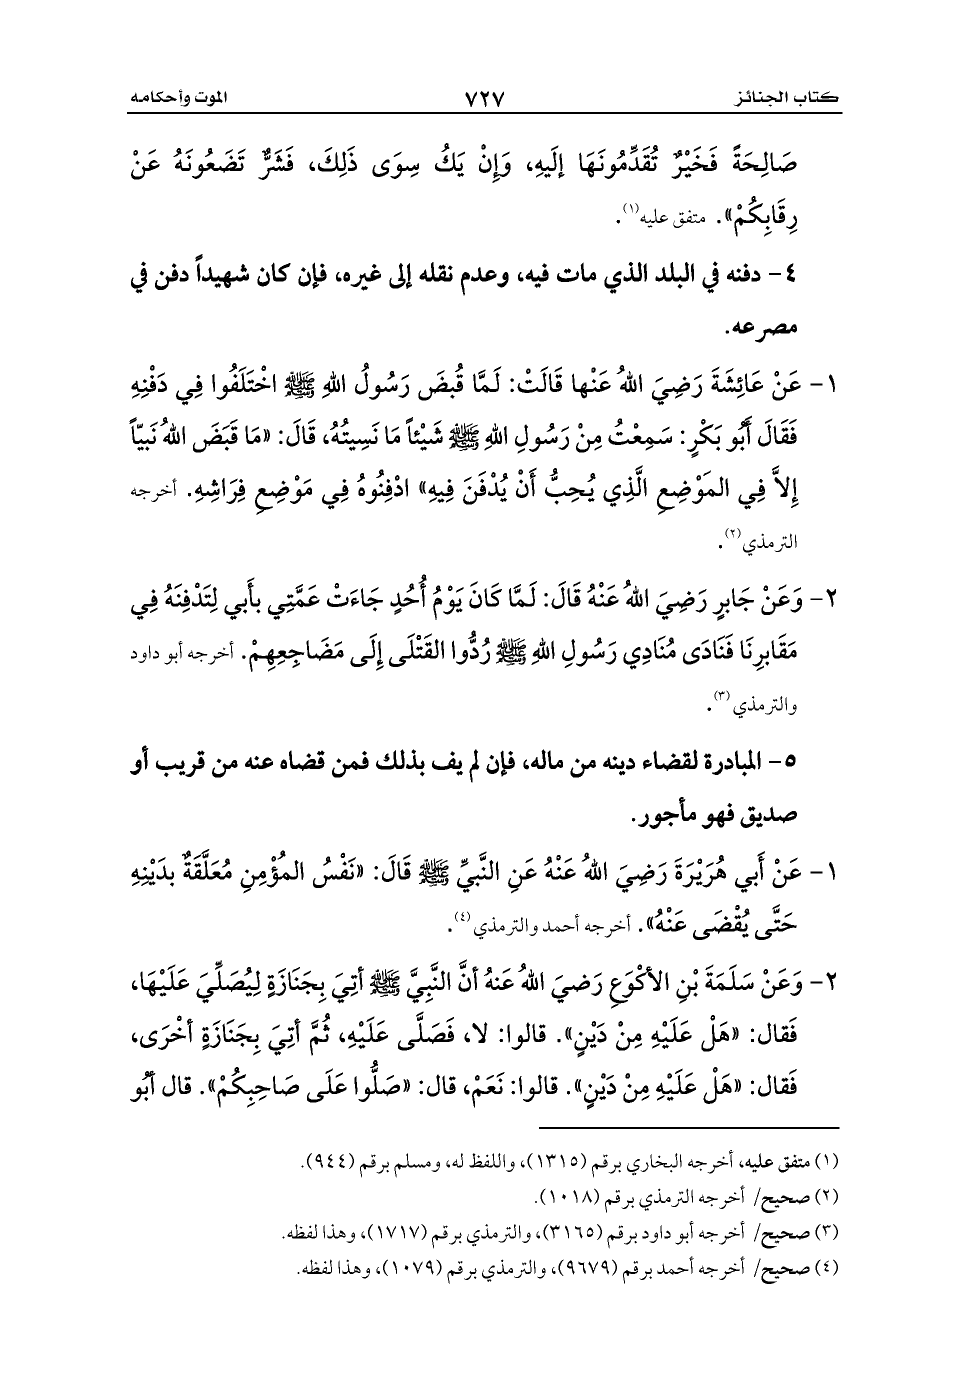 كتاب الجنائز ٧٢٧ الموت وأحكامه
صَالِحَةً فَخَيْرٌ تُقَدِّمُونَهَا إلَيهِ، وَإنْ يَكُ سِوَى ذَلِكَ، فَشَرٌّ تَضَعُونَهُ عَنْ
رِقَابِكُمْ». متفق عليه(١).
٤- دفنه في البلد الذي مات فيه، وعدم نقله إلى غيره، فإن كان شهيداً دفن في
مصرعه.
١- عَنْ عَائِشَةَ رَضِيَ اللهُ عَنْها قَالَتْ: لَمَّا قُبضَ رَسُولُ اللهِ ﷺ اخْتَلَفُوا فِي دَفْنِهِ
فَقَالَ أَبُو بَكْرٍ: سَمِعْتُ مِنْ رَسُولِ اللهِ ﷺ شَيْئاً مَا نَسِيتُهُ، قَالَ: «مَا قَبَضَ اللهُ نَبيّاً
إلاَّ فِي المَوْضِعِ الَّذِي يُحِبُّ أَنْ يُدْفَنَ فِيهِ» ادْفِنُوهُ فِي مَوْضِعِ فِرَاشِهِ. أخرجه
الترمذي(٢).
٢- وَعَنْ جَابرٍ رَضِيَ اللهُ عَنْهُ قَالَ: لَمَّا كَانَ يَوْمُ أُحُدٍ جَاءَتْ عَمَّتِي بأَبي لِتَدْفِنَهُ فِي
مَقَابرِنَا فَنَادَى مُنَادِي رَسُولِ اللهِ ﷺ رُدُّوا القَتْلَى إلَى مَضَاجِعِهِمْ. أخرجه أبو داود
والترمذي(٣).
٥- المبادرة لقضاء دينه من ماله، فإن لم يف بذلك فمن قضاه عنه من قريب أو
صديق فهو مأجور.
١- عَنْ أَبي هُرَيْرَةَ رَضِيَ اللهُ عَنْهُ عَنِ النَّبيِّ ﷺ قَالَ: «نَفْسُ المُؤْمِنِ مُعَلَّقَةٌ بدَيْنِهِ
حَتَّى يُقْضَى عَنْهُ». أخرجه أحمد والترمذي(٤).
٢- وَعَنْ سَلَمَةَ بْنِ الأكْوَعِ رَضيَ اللهُ عَنهُ أنَّ النَّبيَّ ﷺ أتِيَ بِجَنَازَةٍ لِيُصَلِّيَ عَلَيْهَا،
فَقال: «هَلْ عَلَيْهِ مِنْ دَيْنٍ». قالوا: لا، فَصَلَّى عَلَيْهِ، ثُمَّ أتِيَ بِجَنَازَةٍ أخْرَى،
فَقال: «هَلْ عَلَيْهِ مِنْ دَيْنٍ». قالوا: نَعَمْ، قال: «صَلُّوا عَلَى صَاحِبِكُمْ». قال أبُو
(١) متفق عليه، أخرجه البخاري برقم (١٣١٥)، واللفظ له، ومسلم برقم (٩٤٤).
(٢) صحيح/ أخرجه الترمذي برقم (١٠١٨).
(٣) صحيح/ أخرجه أبو داود برقم (٣١٦٥)، والترمذي برقم (١٧١٧)، وهذا لفظه.
(٤) صحيح/ أخرجه أحمد برقم (٩٦٧٩)، والترمذي برقم (١٠٧٩)، وهذا لفظه.